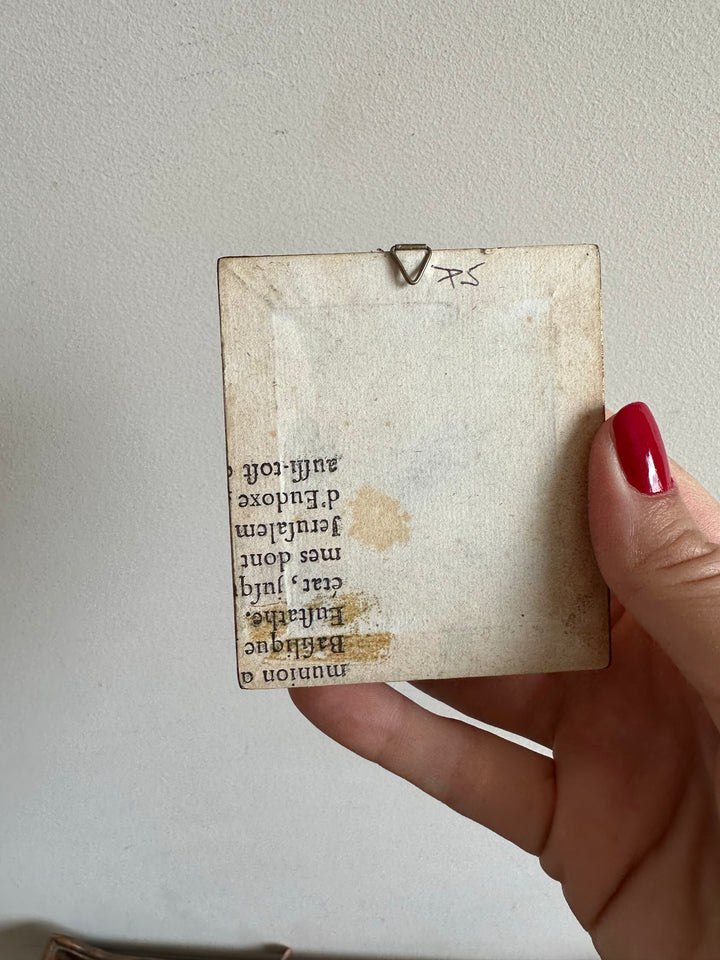 munion a
Baſilique
Euſtathe.
état, juſq
mes dont
Jeruſalem
d'Eudoxe
auſſi-toſt